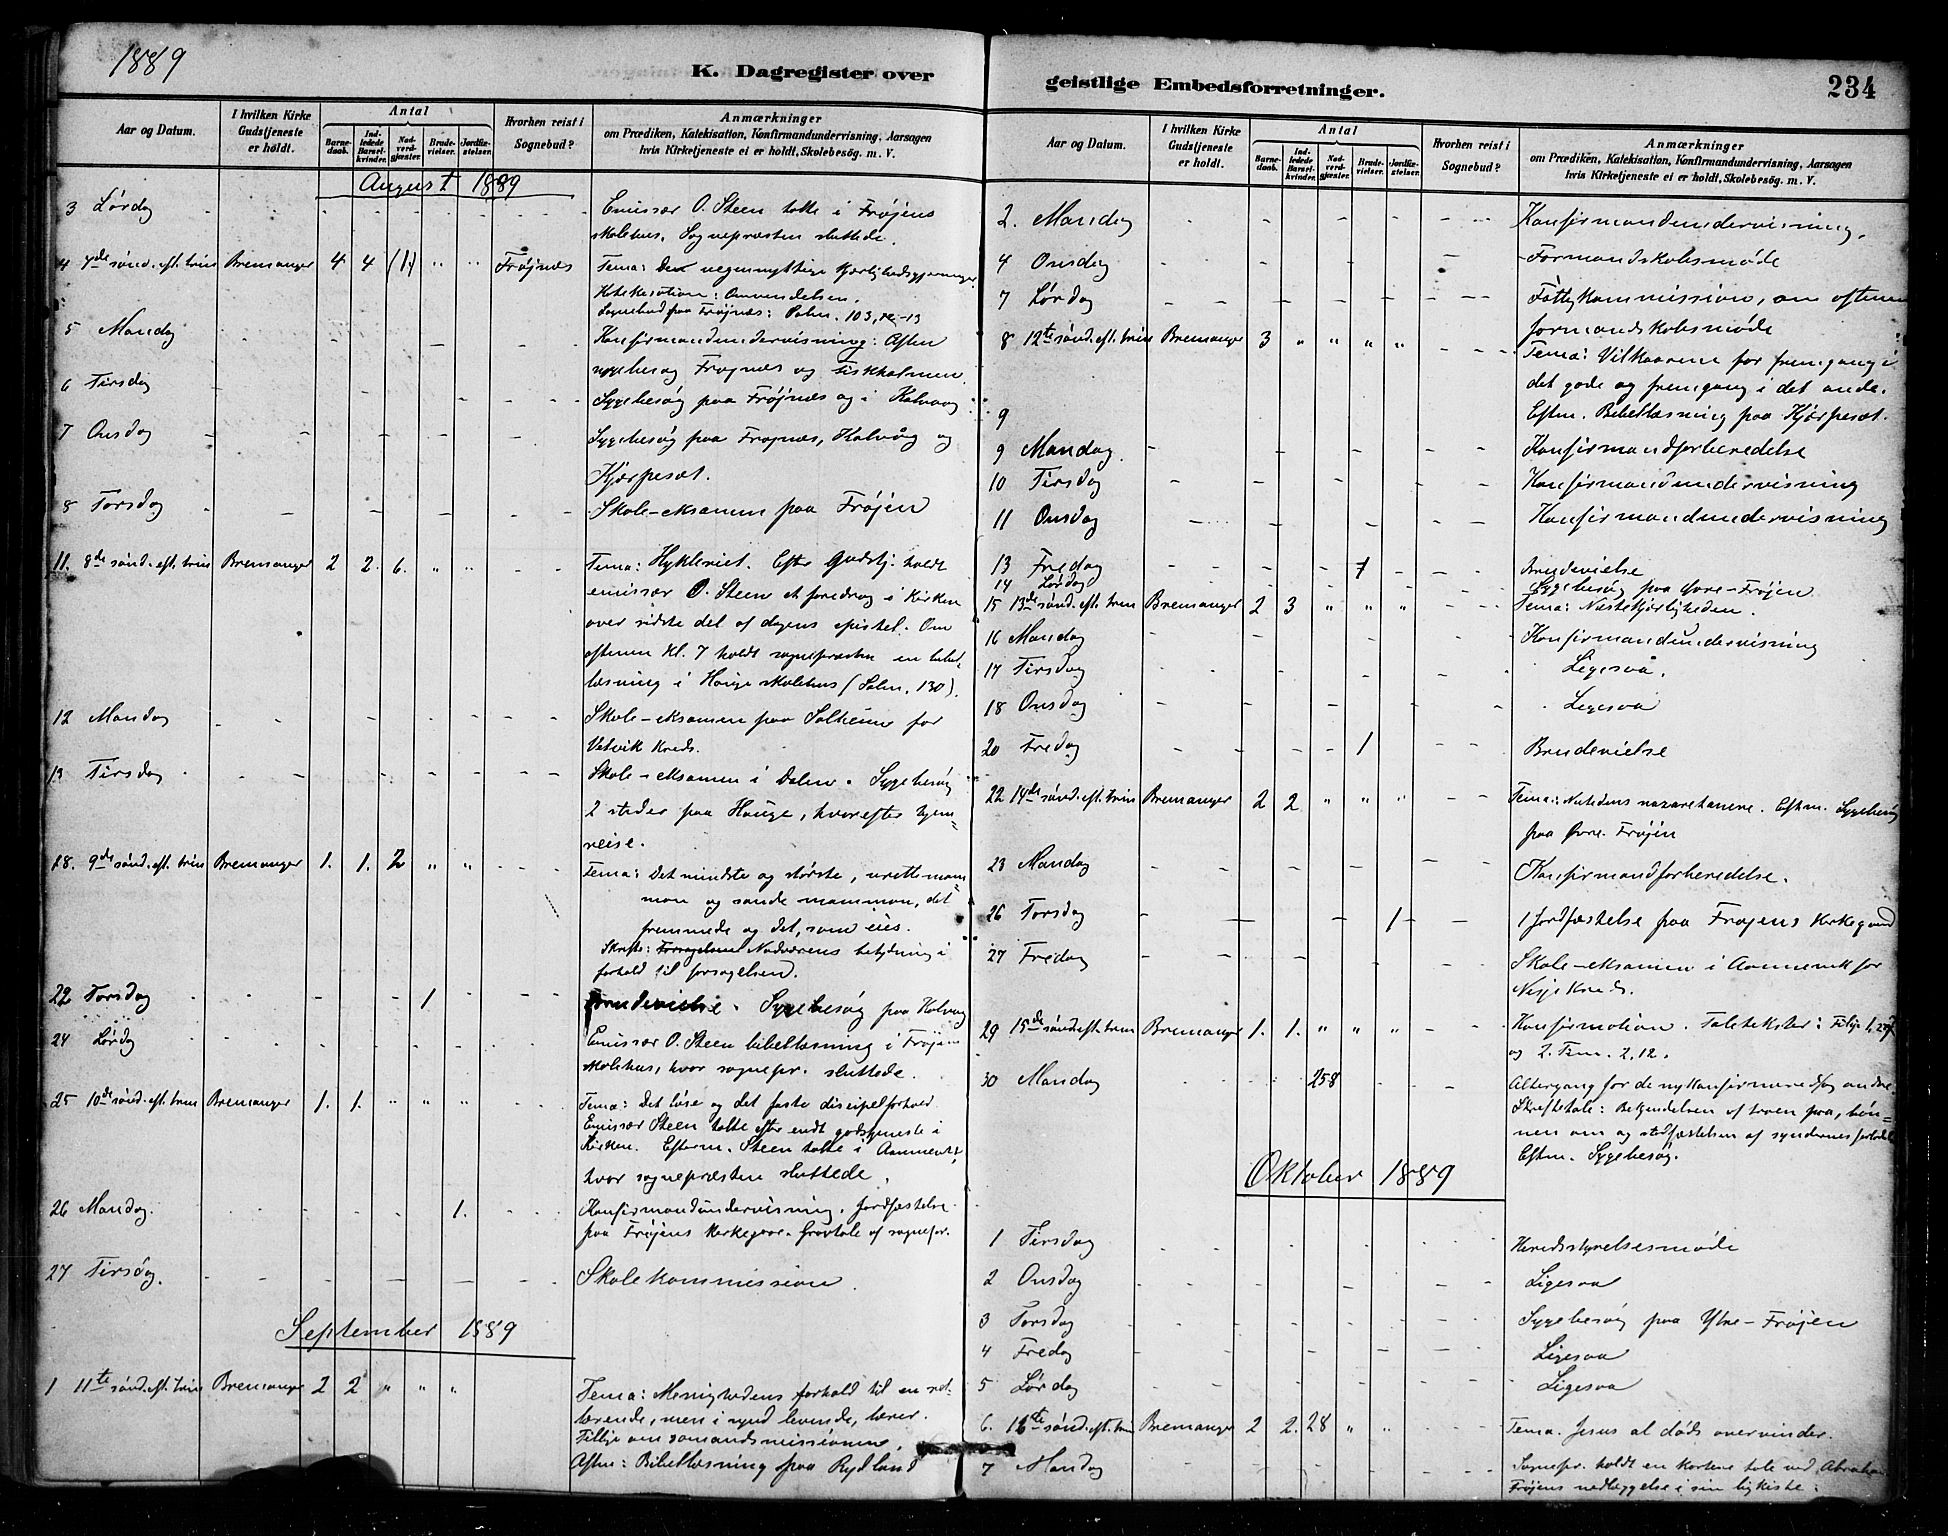 1889
K. Dagregister over
Aar og Datum.
I hvilken Kirke Gudstjeneste er holdt.
Antal
Barnedaab.
Indledede Barselkvinder.
Nadverdgjæster.
Brudevielser.
Jordfæstelser.
Hvorhen reist i Sognebud?
Anmærkninger
om Prædiken, Katekisation, Konfirmandundervisning, Aarsagen
hvis Kirketjeneste ei er holdt, Skolebesøg. m. V.
August 1889
3 Lørdag Emissær O. Steen talte i Frøjens
skolehus. Sognepræsten sluttede.
4 7de sønd. eft. trin Bremanger 4 4 (1) " " Frøjnæs Tema: Den uegennyttige Kjærlighedsgjerninger
Katekesation: Omvendelsen.
Sognebud paa Frøjnæs: Salm. 103,
5 Mandag Konfirmandundervisning: Aften
sygebesøg Frøjnæs og
6 Tirsdag Sygebesøg paa Frøjnæs og i Kalvaag
7 Onsdag Sygebesøg paa Frøjnæs, Kalvåg og
Kjærpesæt.
8 Torsdag Skole-eksamen paa Frøjen
11. 8de sønd. eft. trin Bremanger 2 2. 6. " " Tema: Hykleriet. Efter Gudstj. holdt
emissær O. Steen et foredrag i Kirken
over sidste del af dagens epistel. Om
aftenen Kl. 7 holdt sognepræsten en bibel-
læsning i Hauge skolehus (Salm. 130).
12 Mandag Skole-eksamen paa Solheim for
Vetvik Kreds.
13 Tirsdag Skole-eksamen i Dalen. Sygebesøg
2 steder paa Hauge, hvorefter hjem=
reise.
18. 9de sønd. eft. trin Bremanger 1. 1. 2 " " Tema: Det mindste og største, urette mam=
mon og sande mammon, det
fremmede og det, som eies.
Skrifte: Forsagelsen Nadverens betydning i
forhold til forsagelsen.
22 Torsdag 1 Brudevielse. Sygebesøg paa Kalvaag
24 Lørdag Emissær O. Steen bibellæsning i Frøjen
skolehus, hvor sognepr. sluttede.
25 10de sønd. eft. trin Bremanger 1. 1. " " " Tema: Det løse og det faste discipelforhold.
Emissær Steen talte efter endt gudstjeneste i
Kirken. Efterm. Steen talte i
hvor sognepræsten sluttede.
26 Mandag. 1. Konfirmandundervisning. Jordfæstelse
paa Frøjens Kirkegaar. Gravtale af sognepr.
27 Tirsdag. Skolekommission.
September 1889
1 11te sønd. eft. trin Bremanger 2 2 " " " Tema: Menighedens forhold til en ret-
lærende, men i synd levende, lærer.
Tillige om sømandsmissionen.
Aften: Bibellæsning paa Rydland
geistlige Embedsforretninger.
234
Aar og Datum.
I hvilken Kirke Gudstjeneste er holdt.
Antal
Barnedaab.
Indledede Barselkvinder.
Nadverdgjæster.
Brudevielser.
Jordfæstelser.
Hvorhen reist i Sognebud?
Anmærkninger
om Prædiken, Katekisation, Konfirmandundervisning, Aarsagen
hvis Kirketjeneste ei er holdt, Skolebesøg. m. V.
2. Mandag Konfirmandundervisning.
4 Onsdag Formandskabsmøde
7 Lørdag Fattigkommission, om aftenen
formandskabsmøde
8 12te sønd. eft. trin Bremanger 3 " " " " Tema: Vilkaarene for fremgang i
det gode og fremgang i det onde.
9 Eftm. Bibellæsning paa Kjærpesæt.
9 Mandag. Konfirmandforberedelse
10 Tirsdag Konfirmandundervisning
11 Onsdag Konfirmandundervisning
13 Fredag 1 Brudevielse
14 Lørdag Sygebesøg paa Øvre-Frøjen
15 13de sønd. eft. trin Bremanger 2 3 " " " Tema: Næstekjærligheden.
16 Mandag Konfirmandundervisning
17 Tirsdag Ligesaa.
18 Onsdag Ligesaa
20 Fredag 1 Brudevielse
22 14de sønd. eft. trin Bremanger 2 2 " " " Tema: Nutidens nazaretanere. Eftm. Sygebesøg
paa Øvre. Frøjen
23 Mandag Konfirmandforberedelse.
26 Torsdag 1 1 Jordfæstelse paa Frøjens Kirkegaard
27 Fredag Skole-eksamen i for
Kreds.
29 15de sønd. eft. trin Bremanger 1. 1. " " " Konfirmation. Taletekster: Filip 1, 27
og 2. Tim. 2, 12.
30 Mandag 258 Altergang for de nykonfirmerede og andre
Skriftetale: Bekjendelsen af troen paa, bøn-
nen om og stadfæstelsen af syndernes forladelse
Eftm. Sygebesøg.
Oktober 1889
1 Tirsdag Heredsstyrelsesmøde
2 Onsdag Ligesaa
3 Torsdag Sygebesøg paa Ytre-Frøjen
4 Fredag Ligesaa
5 Lørdag Ligesaa
6. 16de sønd. eft. trin Bremanger 2 2. 28 " " Tema. Jesus al døds overvinder.
7 Mandag Sognepr. holdt en kortere tale ved
Frøjens nedlæggelse i sin ligkiste.